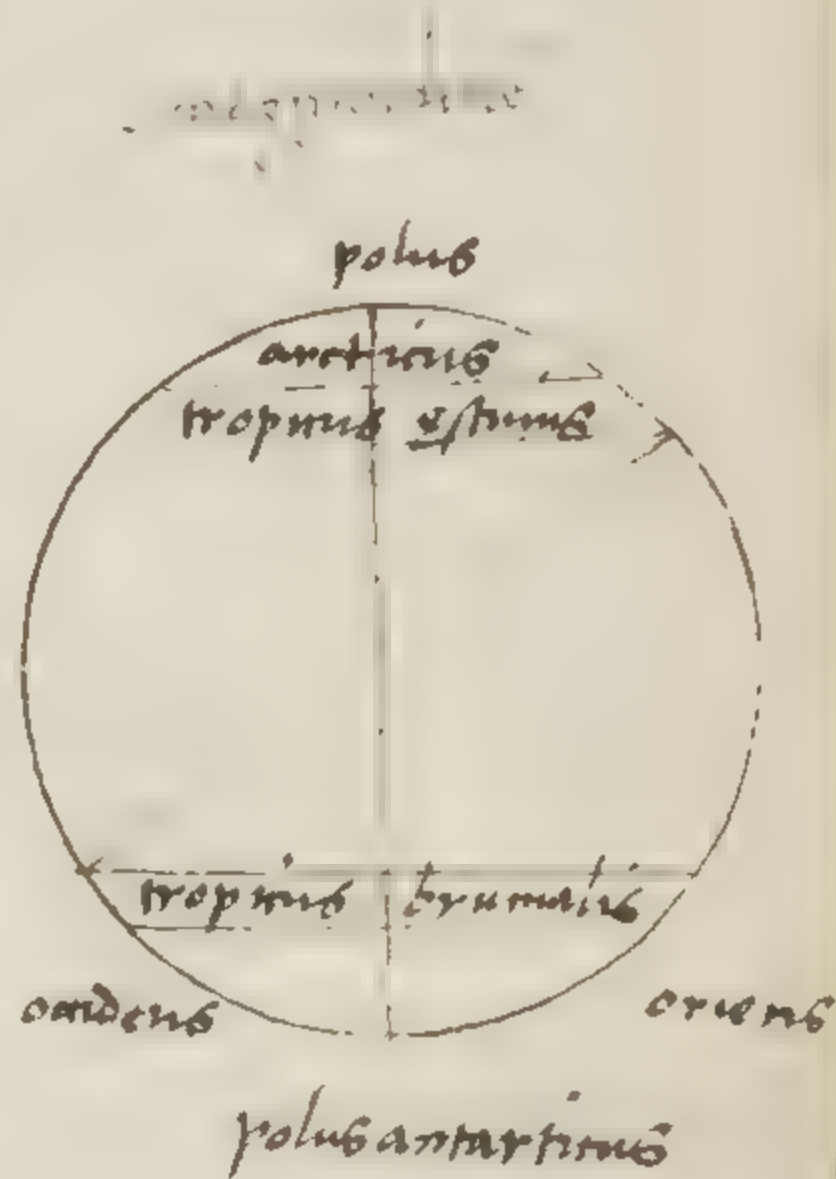 polus
arcticus
tropicus estiuus
tropicus brumalis
occidens
oriens
polus antarticus